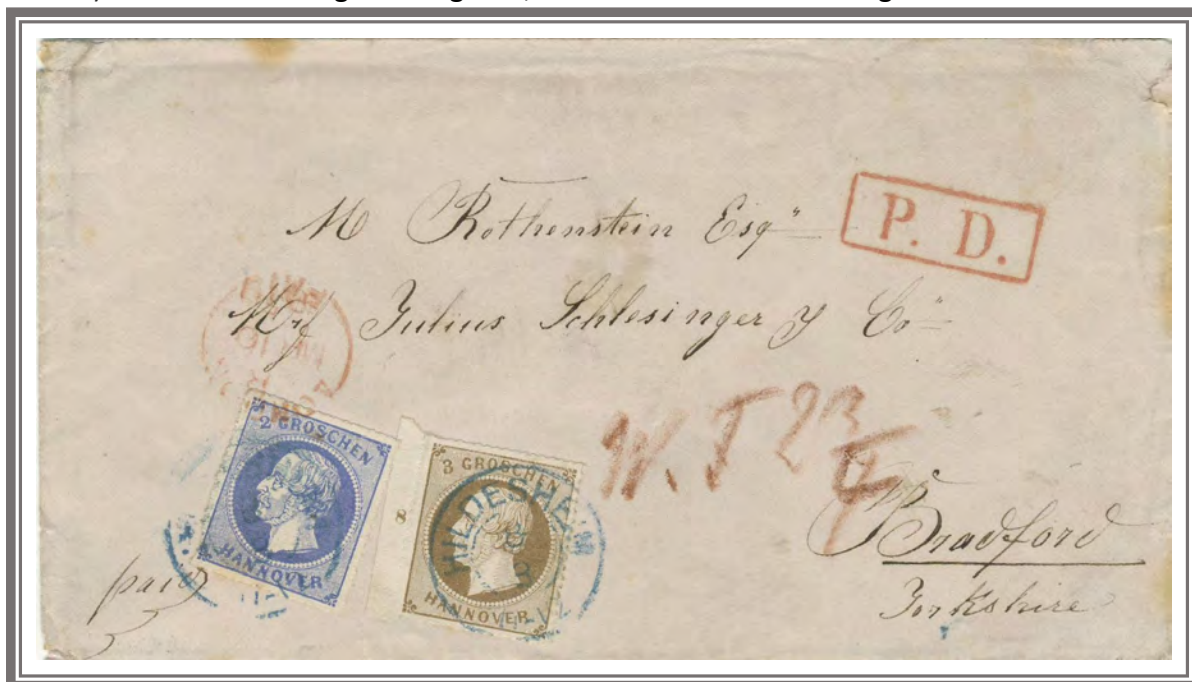 M Rothenstein Esq"
P. D.
Mrs Julius Schlesinger y Co
W. F 2
2 GROSCHEN
HANNOVER
8
3 GROSCHEN
HANNOVER
HILDESHEIM
paid
Bradford
Yorkshire